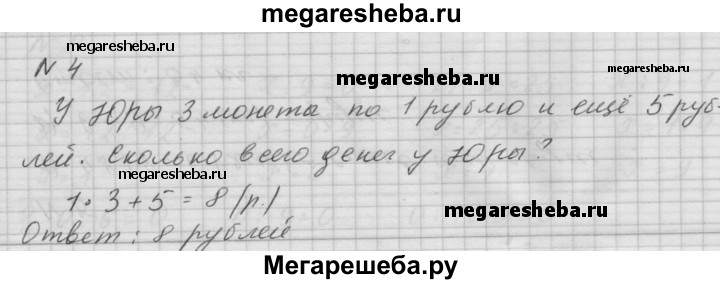 megaresheba.ru
megaresheba.ru
N 4
megaresheba.ru
megaresheba.ru
У Юры 3 монета по 1 рублю и ещё 5 руб-
лей. Сколько всего денег у Юры?
megaresheba.ru
1 · 3 + 5 = 8 (р.)
megaresheba.ru
Ответ: 8 рублей
Мегарешеба.ру